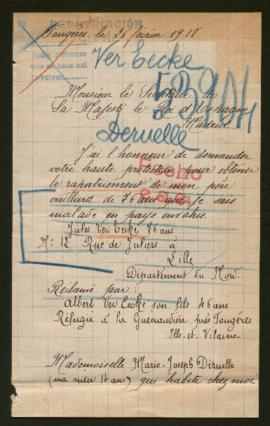 REPATRIACIÓN
Fougères le 26 février 1918
Ver Eecke
Monsieur le Secrétaire de
Sa Majesté le Roi d'Espagne
Madrid
Deruelle
J'ai l'honneur de demander
votre haute protection pour obtenir
le rapatriement de mon père
vieillard de 76 ans que je sais
malade en pays envahis.
Jules Ver Eecke 76 ans
N° 12 Rue de Juliers à
Lille
Département du Nord.
Réclamé par:
Albert Ver Eecke son fils 46 ans
Réfugié à la Guénaudière près Fougères
Ille-et-Vilaine
Mademoiselle Marie-Joseph Deruelle
(ma nièce 16 ans) qui habite chez moi